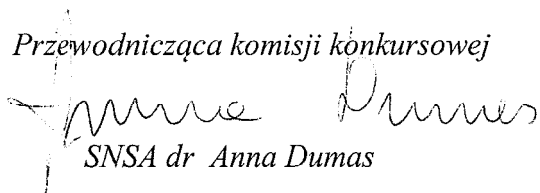 Przewodnicząca komisji konkursowej
Anna Dumas
SNSA dr Anna Dumas